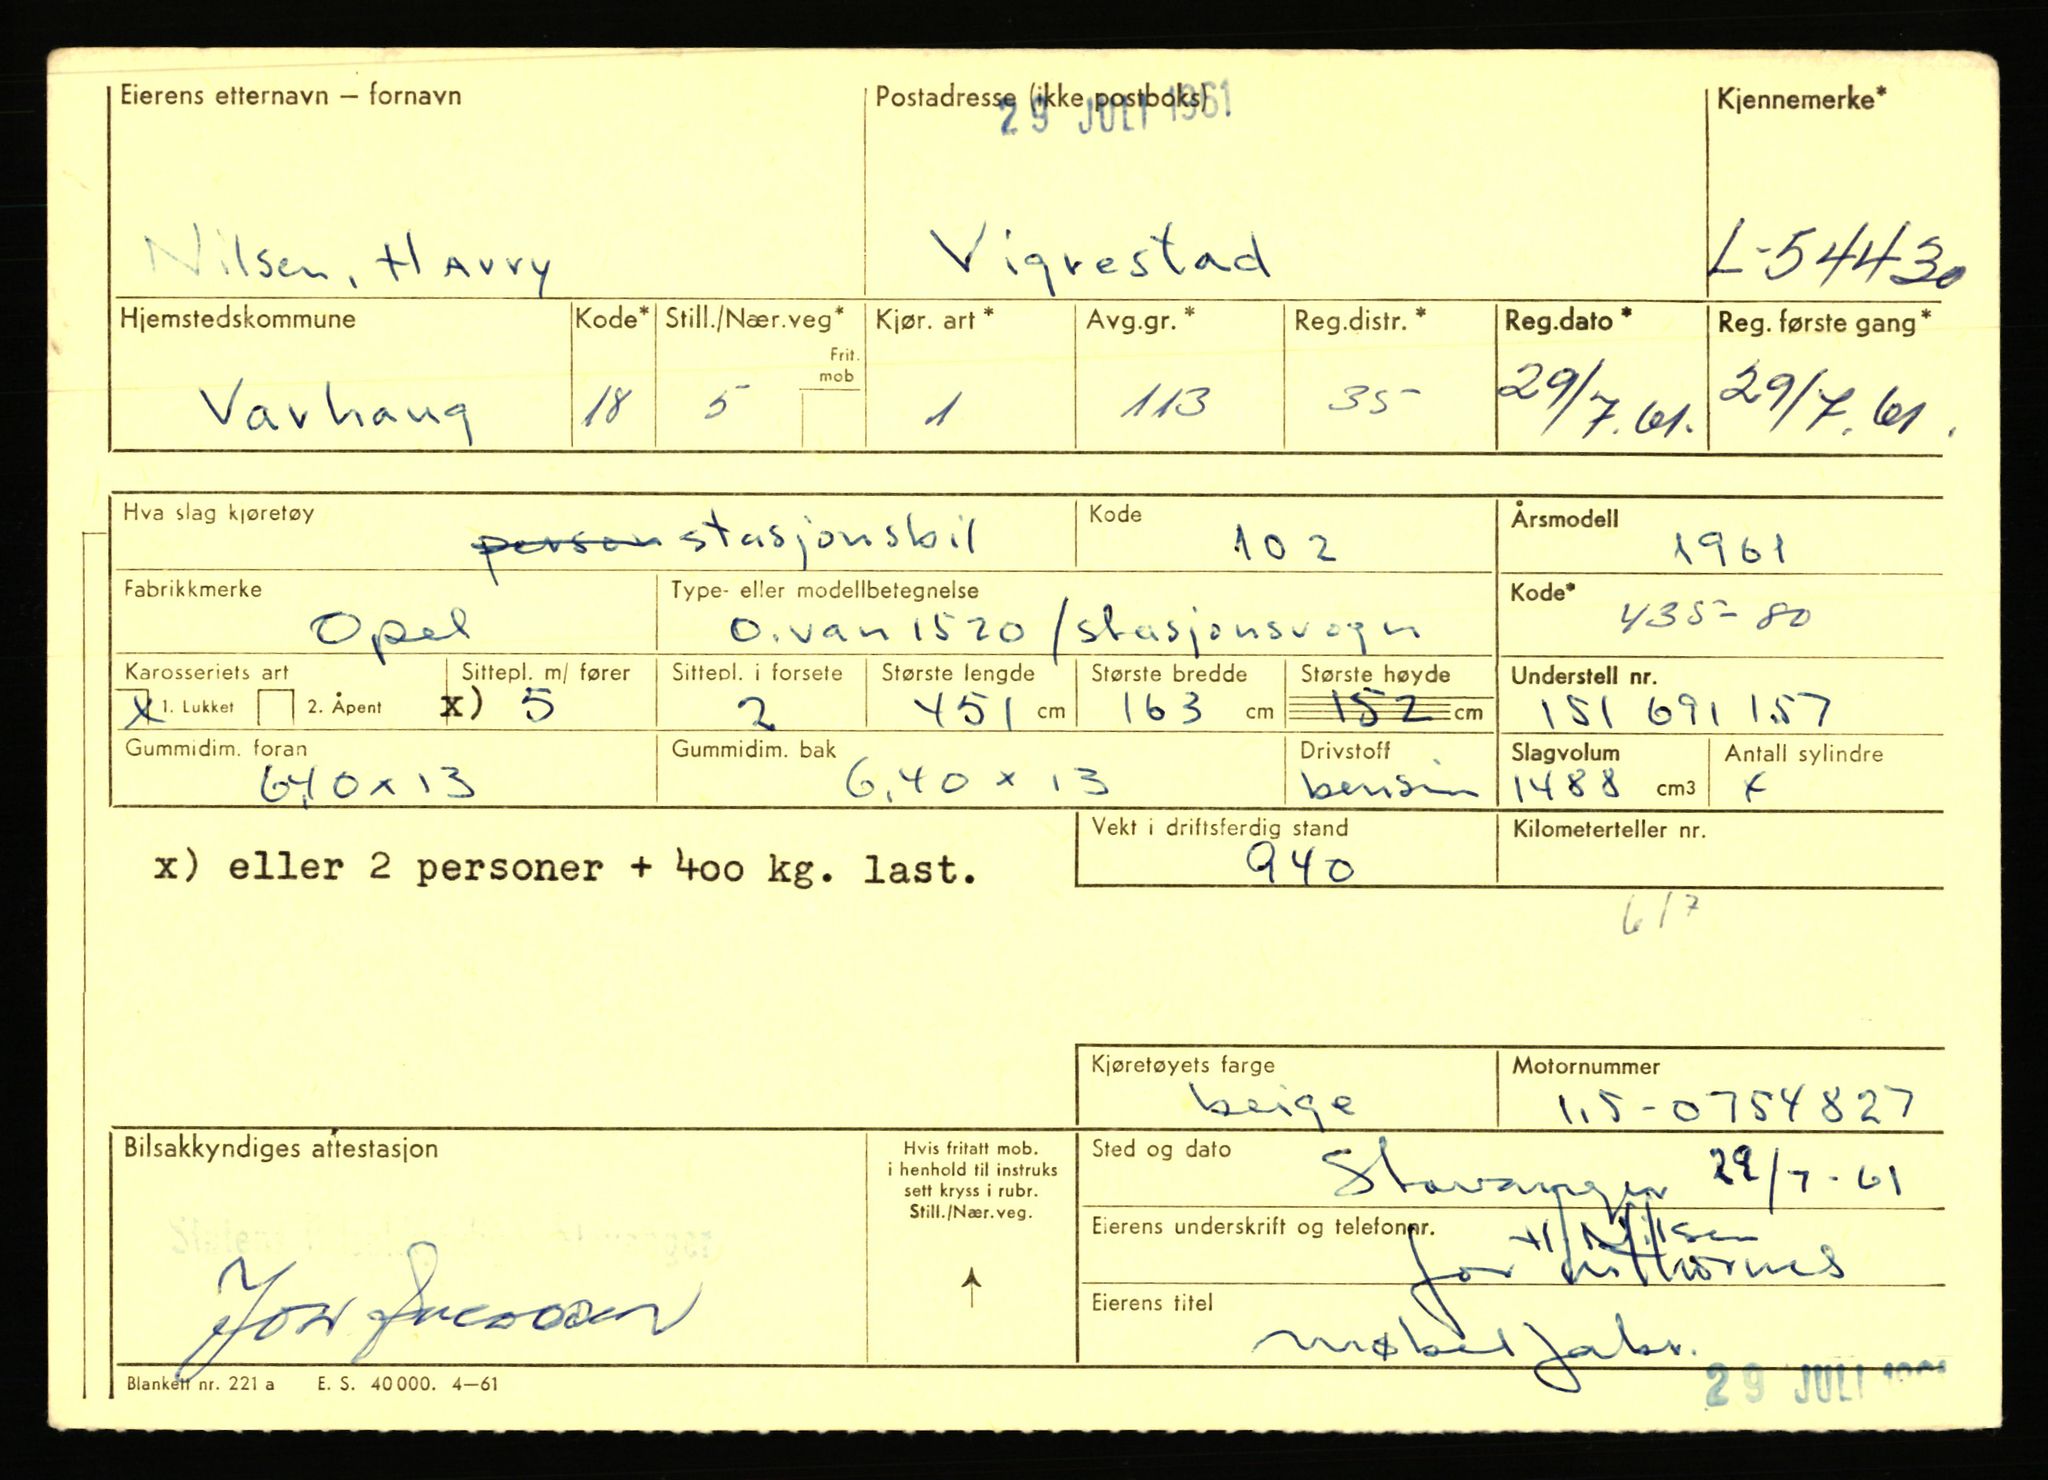 Eierens etternavn — fornavn Postadresse (ikke postboks) Kjennemerke*
29 JULI 1961
Nilsen, Harry Vigrestad L-54430
Hjemstedskommune Kode* Still./Nær.veg* Kjør. art* Avg.gr.* Reg.distr.* Reg.dato* Reg. første gang*
Frit. mob
Varhaug 18 5 1 113 35 29/7.61. 29/7.61.
Hva slag kjøretøy Kode Årsmodell
person stasjonsbil 102 1961
Fabrikkmerke Type- eller modellbetegnelse Kode*
Opel O.van 1520 / stasjonsvogn 435-80
Karosseriets art Sittepl. m/ fører Sittepl. i forsete Største lengde Største bredde Største høyde Understell nr.
x 1. Lukket 2. Åpent x) 5 2 451 cm 163 cm 152 cm 151 691 157
Gummidim. foran Gummidim. bak Drivstoff Slagvolum Antall sylindre
6,40 x 13 6,40 x 13 bensin 1488 cm3 4
Vekt i driftsferdig stand Kilometerteller nr.
940
x) eller 2 personer + 400 kg. last.
6/7
Kjøretøyets farge Motornummer
beige 1,5-0754827
Bilsakkyndiges attestasjon Hvis fritatt mob. i henhold til instruks sett kryss i rubr. Still./Nær.veg.
Sted og dato
Stavanger 29/7-61
Eierens underskrift og telefonnr.
H. Nilsen
for
Eierens titel
møbelfabr.
29 JULI
Blankett nr. 221 a E. S. 40 000. 4—61